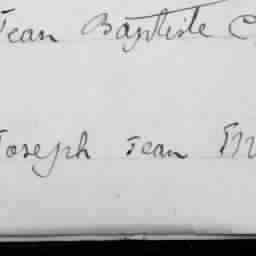 Jean Baptiste C
Joseph Jean M